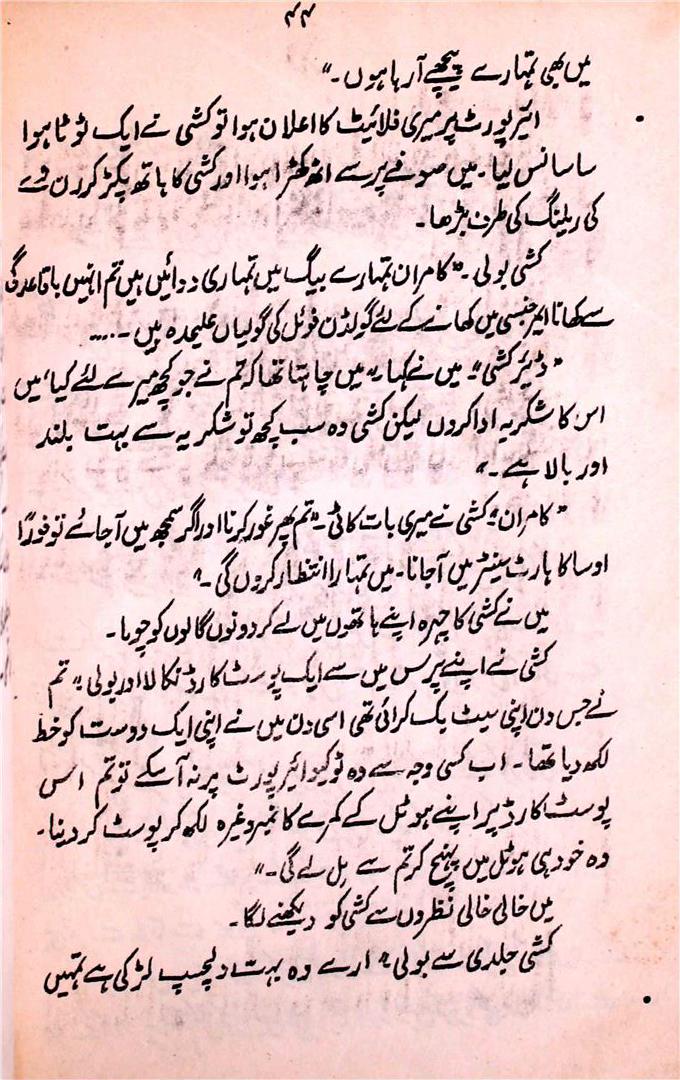 ۴۴
میں بھی تمہارے پیچھے آ رہا ہوں۔"
ائیر پورٹ پر میری فلائیٹ کا اعلان ہوا تو کشی نے ایک ٹوٹا ہوا
سا سانس لیا۔ میں صوفے پر سے اٹھ کھڑا ہوا اور کشی کا ہاتھ پکڑ کر رن وے
کی ریلنگ کی طرف بڑھا۔
کشی بولی۔ "کامران تمہارے بیگ میں تمہاری دوائیں ہیں تم انہیں باقاعدگی
سے کھانا ایمرجنسی میں کھانے کے لئے گولڈن فوئل کی گولیاں علیحدہ ہیں۔....
"ڈیئر کشی" میں نے کہا "میں چاہتا تھا کہ تم نے جو کچھ میرے لئے کیا، میں
اس کا شکریہ ادا کروں لیکن کشی وہ سب کچھ تو شکریہ سے بہت بلند
اور بالا ہے۔"
"کامران" کشی نے میری بات کاٹی۔ "تم پھر غور کرنا اور اگر سمجھ میں آ جائے تو فورًا
اوساکا ہارٹ سینٹر میں آ جانا۔ میں تمہارا انتظار کروں گی۔"
میں نے کشی کا چہرہ اپنے ہاتھوں میں لے کر دونوں گالوں کو چوما۔
کشی نے اپنے پرس میں سے ایک پوسٹ کارڈ نکالا اور بولی "تم
نے جس دن اپنی سیٹ بک کرائی تھی اسی دن میں نے اپنی ایک دوست کو خط
لکھ دیا تھا۔ اب کسی وجہ سے وہ ٹوکیو ائیر پورٹ پر نہ آ سکے تو تم اس
پوسٹ کارڈ پر اپنے ہوٹل کے کمرے کا نمبر وغیرہ لکھ کر پوسٹ کر دینا۔
وہ خود ہی ہوٹل میں پہنچ کر تم سے مِل لے گی۔"
میں خالی خالی نظروں سے کشی کو دیکھنے لگا۔
کشی جلدی سے بولی "ارے وہ بہت دلچسپ لڑکی ہے تمہیں